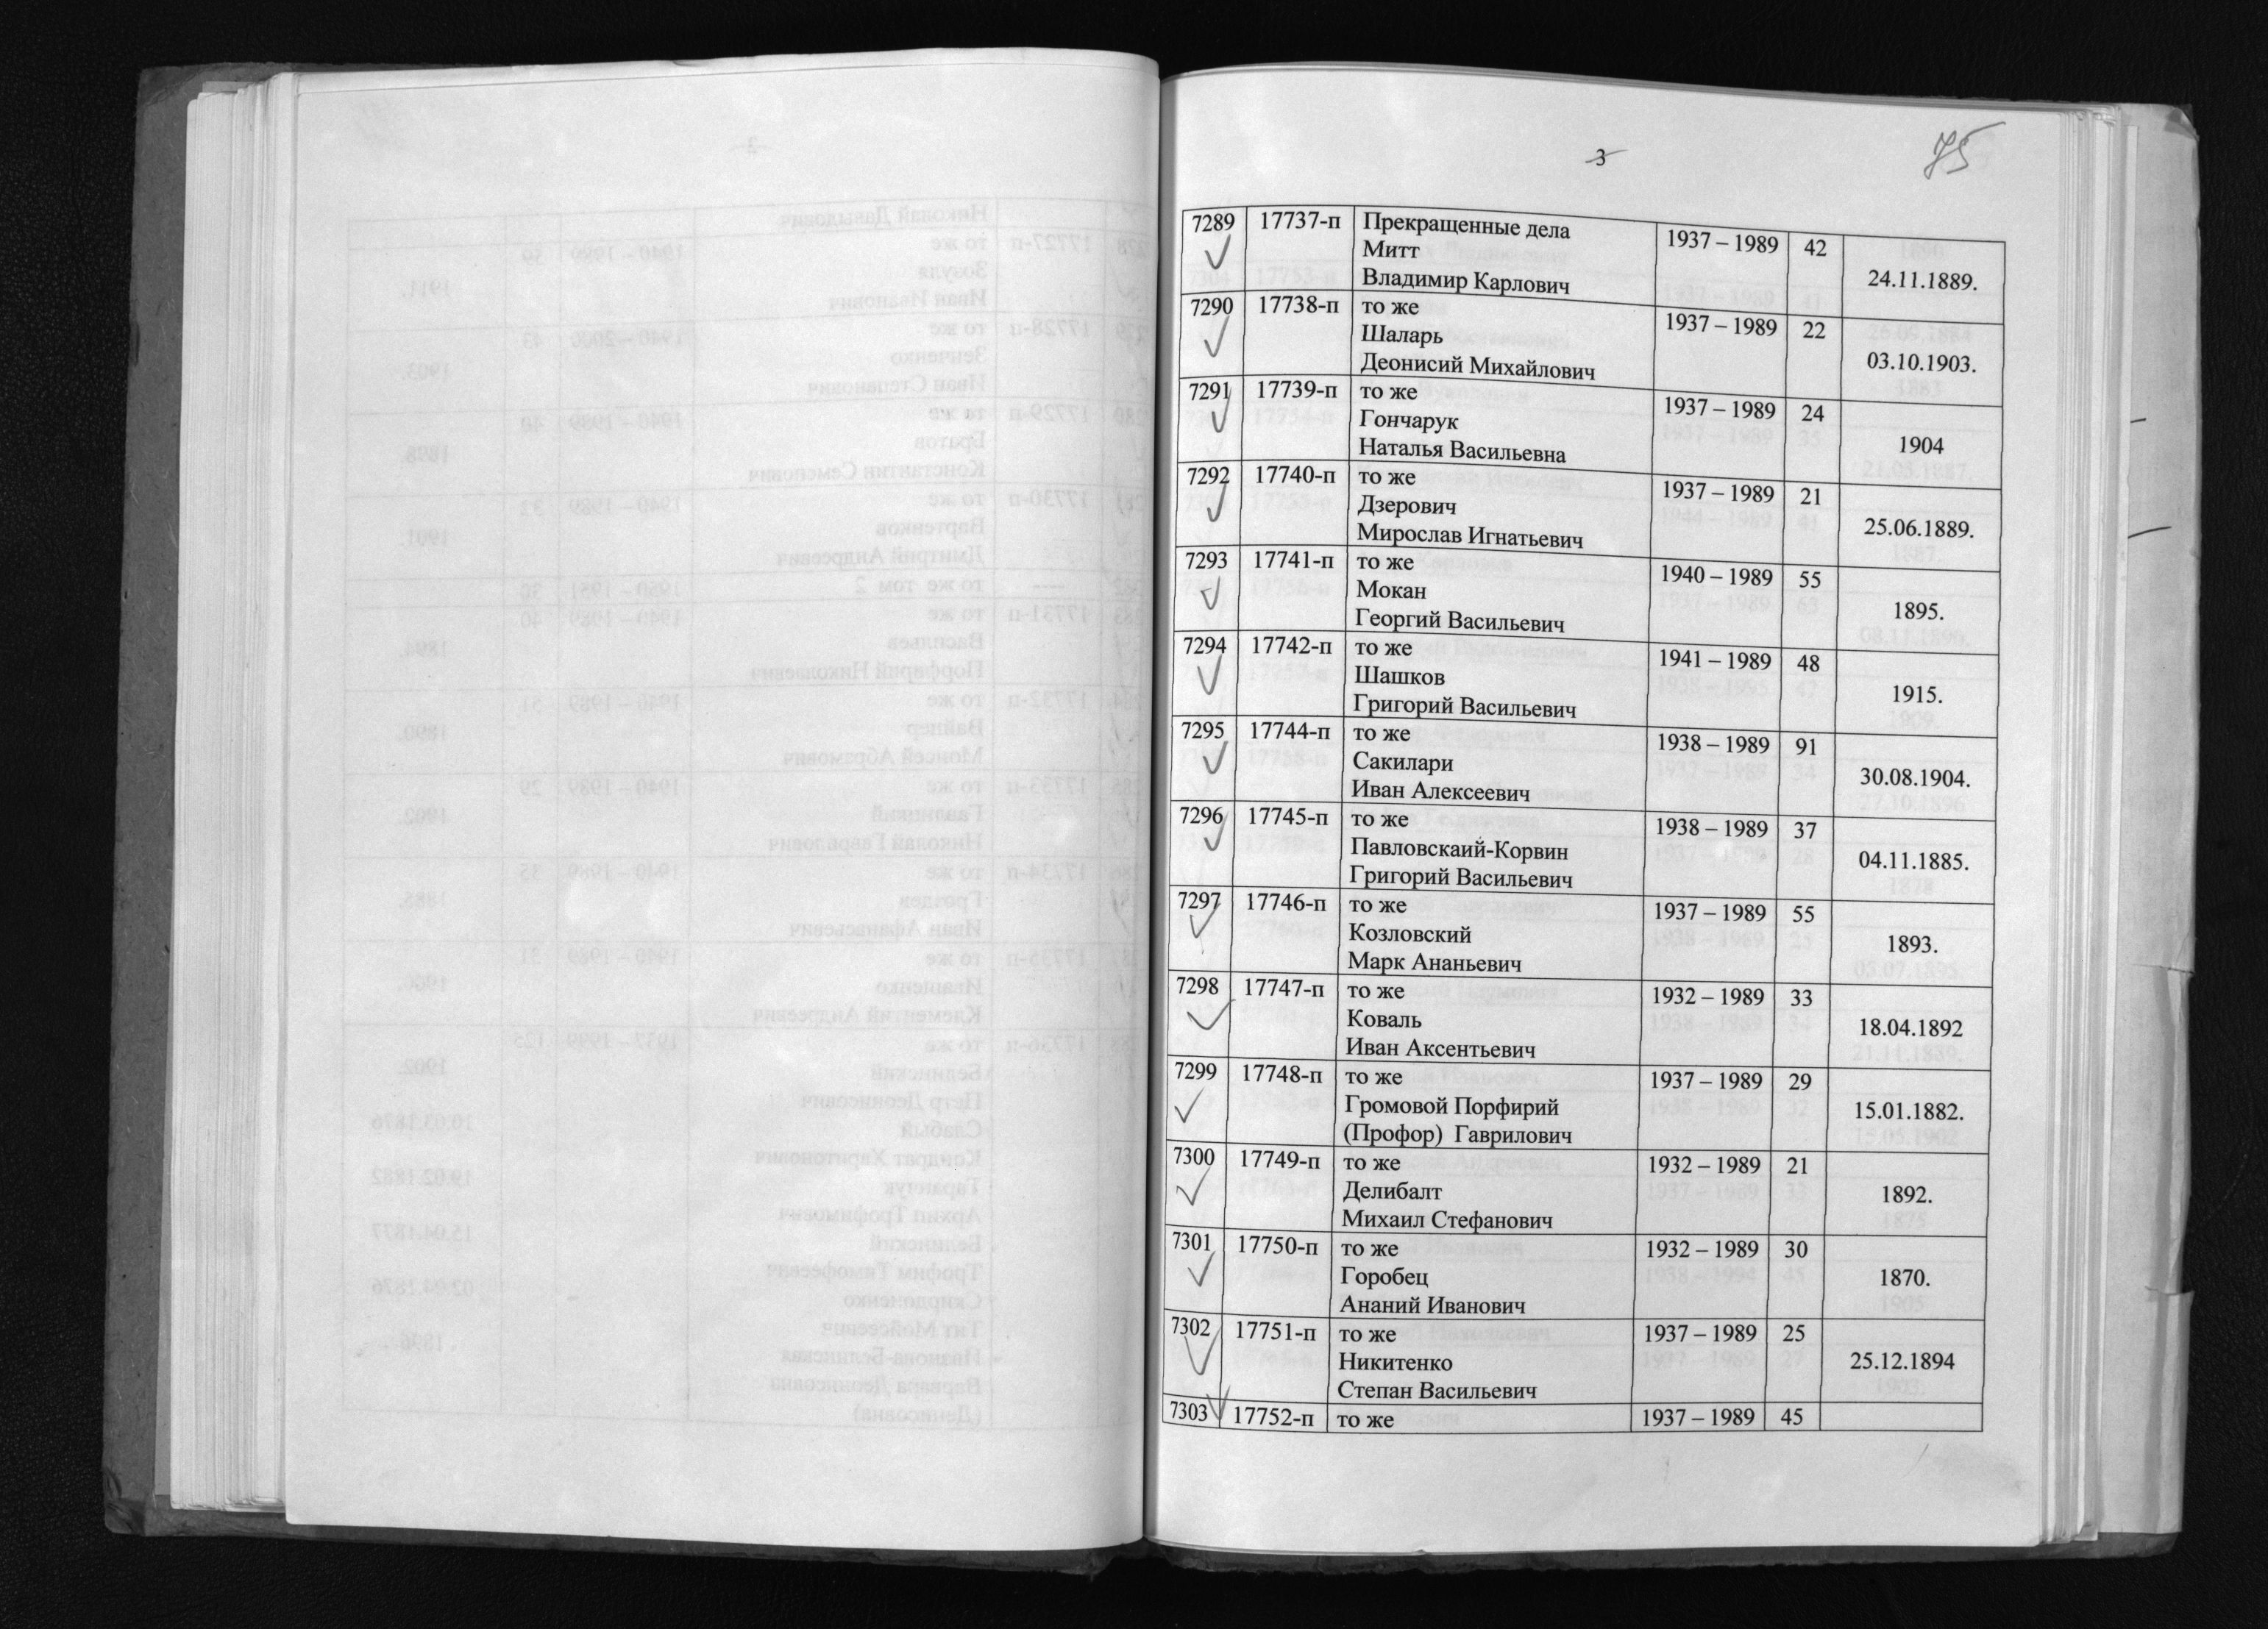 3
75
7289 17737-п Прекращенные дела 1937 – 1989 42
Митт
Владимир Карлович 24.11.1889.
7290 17738-п то же 1937 – 1989 22
Шаларь
Деонисий Михайлович 03.10.1903.
7291 17739-п то же 1937 – 1989 24
Гончарук
Наталья Васильевна 1904
7292 17740-п то же 1937 – 1989 21
Дзерович
Мирослав Игнатьевич 25.06.1889.
7293 17741-п то же 1940 – 1989 55
Мокан
Георгий Васильевич 1895.
7294 17742-п то же 1941 – 1989 48
Шашков
Григорий Васильевич 1915.
7295 17744-п то же 1938 – 1989 91
Сакилари
Иван Алексеевич 30.08.1904.
7296 17745-п то же 1938 – 1989 37
Павловскаий-Корвин
Григорий Васильевич 04.11.1885.
7297 17746-п то же 1937 – 1989 55
Козловский
Марк Ананьевич 1893.
7298 17747-п то же 1932 – 1989 33
Коваль
Иван Аксентьевич 18.04.1892
7299 17748-п то же 1937 – 1989 29
Громовой Порфирий
(Профор) Гаврилович 15.01.1882.
7300 17749-п то же 1932 – 1989 21
Делибалт
Михаил Стефанович 1892.
7301 17750-п то же 1932 – 1989 30
Горобец
Ананий Иванович 1870.
7302 17751-п то же 1937 – 1989 25
Никитенко
Степан Васильевич 25.12.1894
7303 17752-п то же 1937 – 1989 45